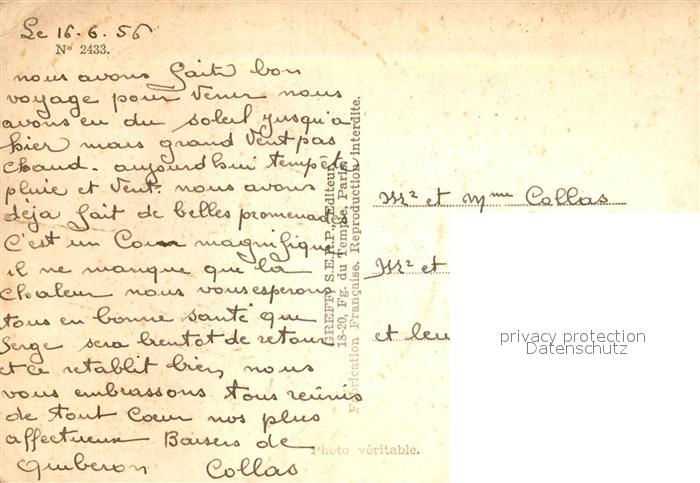 Le 16.6.56
N° 2433.
nous avons fait bon
voyage pour venir nous
avons eu du soleil jusqu'a
hier mais grand vent pas
chaud. aujourd'hui tempête
pluie et vent. nous avons
déja fait de belles promenades
C'est un Coin magnifique
il ne manque que la
Chaleur nous vous esperons
tous en bonne santé que
Serge sera bientot de retour
et ce retablit bien, nous
vous embrassons tous reunis
de tout Coeur nos plus
affectueux Baisers de
Quiberon Collas
GREFF, S.E.R.P., Editeur
18-20, Fg. du Temple, Paris
Fabrication Française. Reproduction interdite.
Photo véritable.
Mr et Mme Collas
Mr et
et leu
privacy protection
Datenschutz